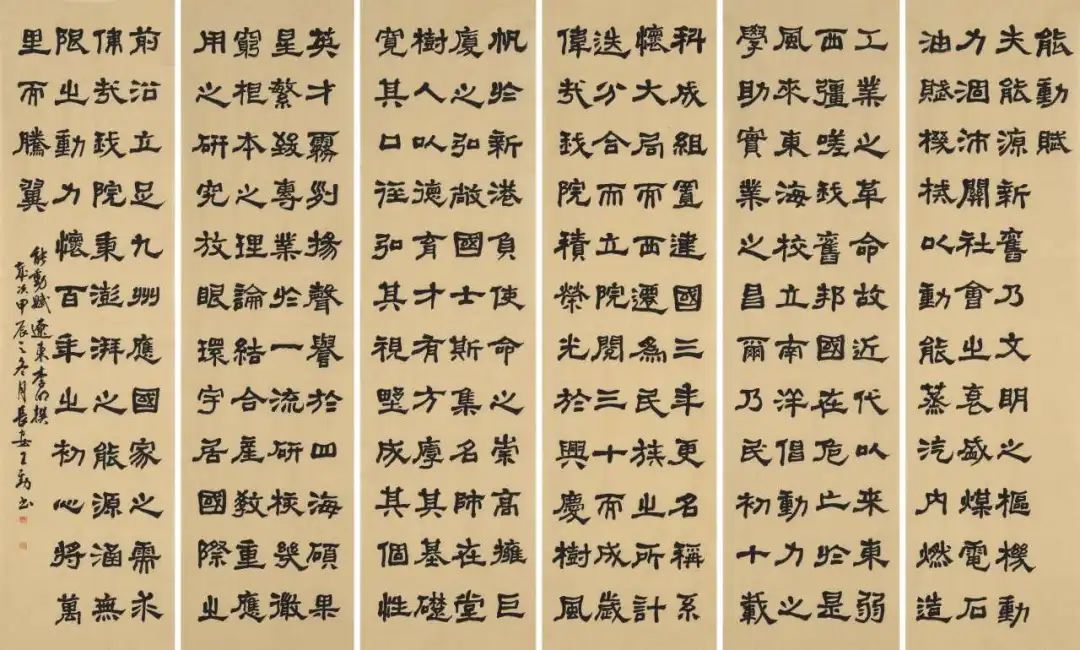 能動賦
夫能源新舊乃文明之樞機動
力涸沛關社會之衰盛煤電石
油賦機械以動能蒸汽內燃造
工業之革命故近代以來東弱
西彊嗟我舊邦國在危亡於是
風來東海校立南洋倡動力之
學助實業之昌爾乃民初十載
科成組置建國三年更名稱系
懷大局而西遷爲民族之所計
迭分合而立院閱三十而成歲
偉哉我院積榮光於興慶樹風
帆於新港負使命之崇高擁巨
廈之弘敞國士斯集名師在堂
樹人以德育才有方厚其基礎
寬其口徑弘其視野成其個性
英才霧列揚聲譽於四海碩果
星繁發專業於一流研核幾微
窮相本之理論結合產教重應
用之研究放眼環宇居國際之
前沿立足九州應國家之需求
哉我院秉澎湃之能源涵無
限之動力懷百年之初心將萬
里而騰翼
能動賦遼東李撰
歲次甲辰之冬月長安王書